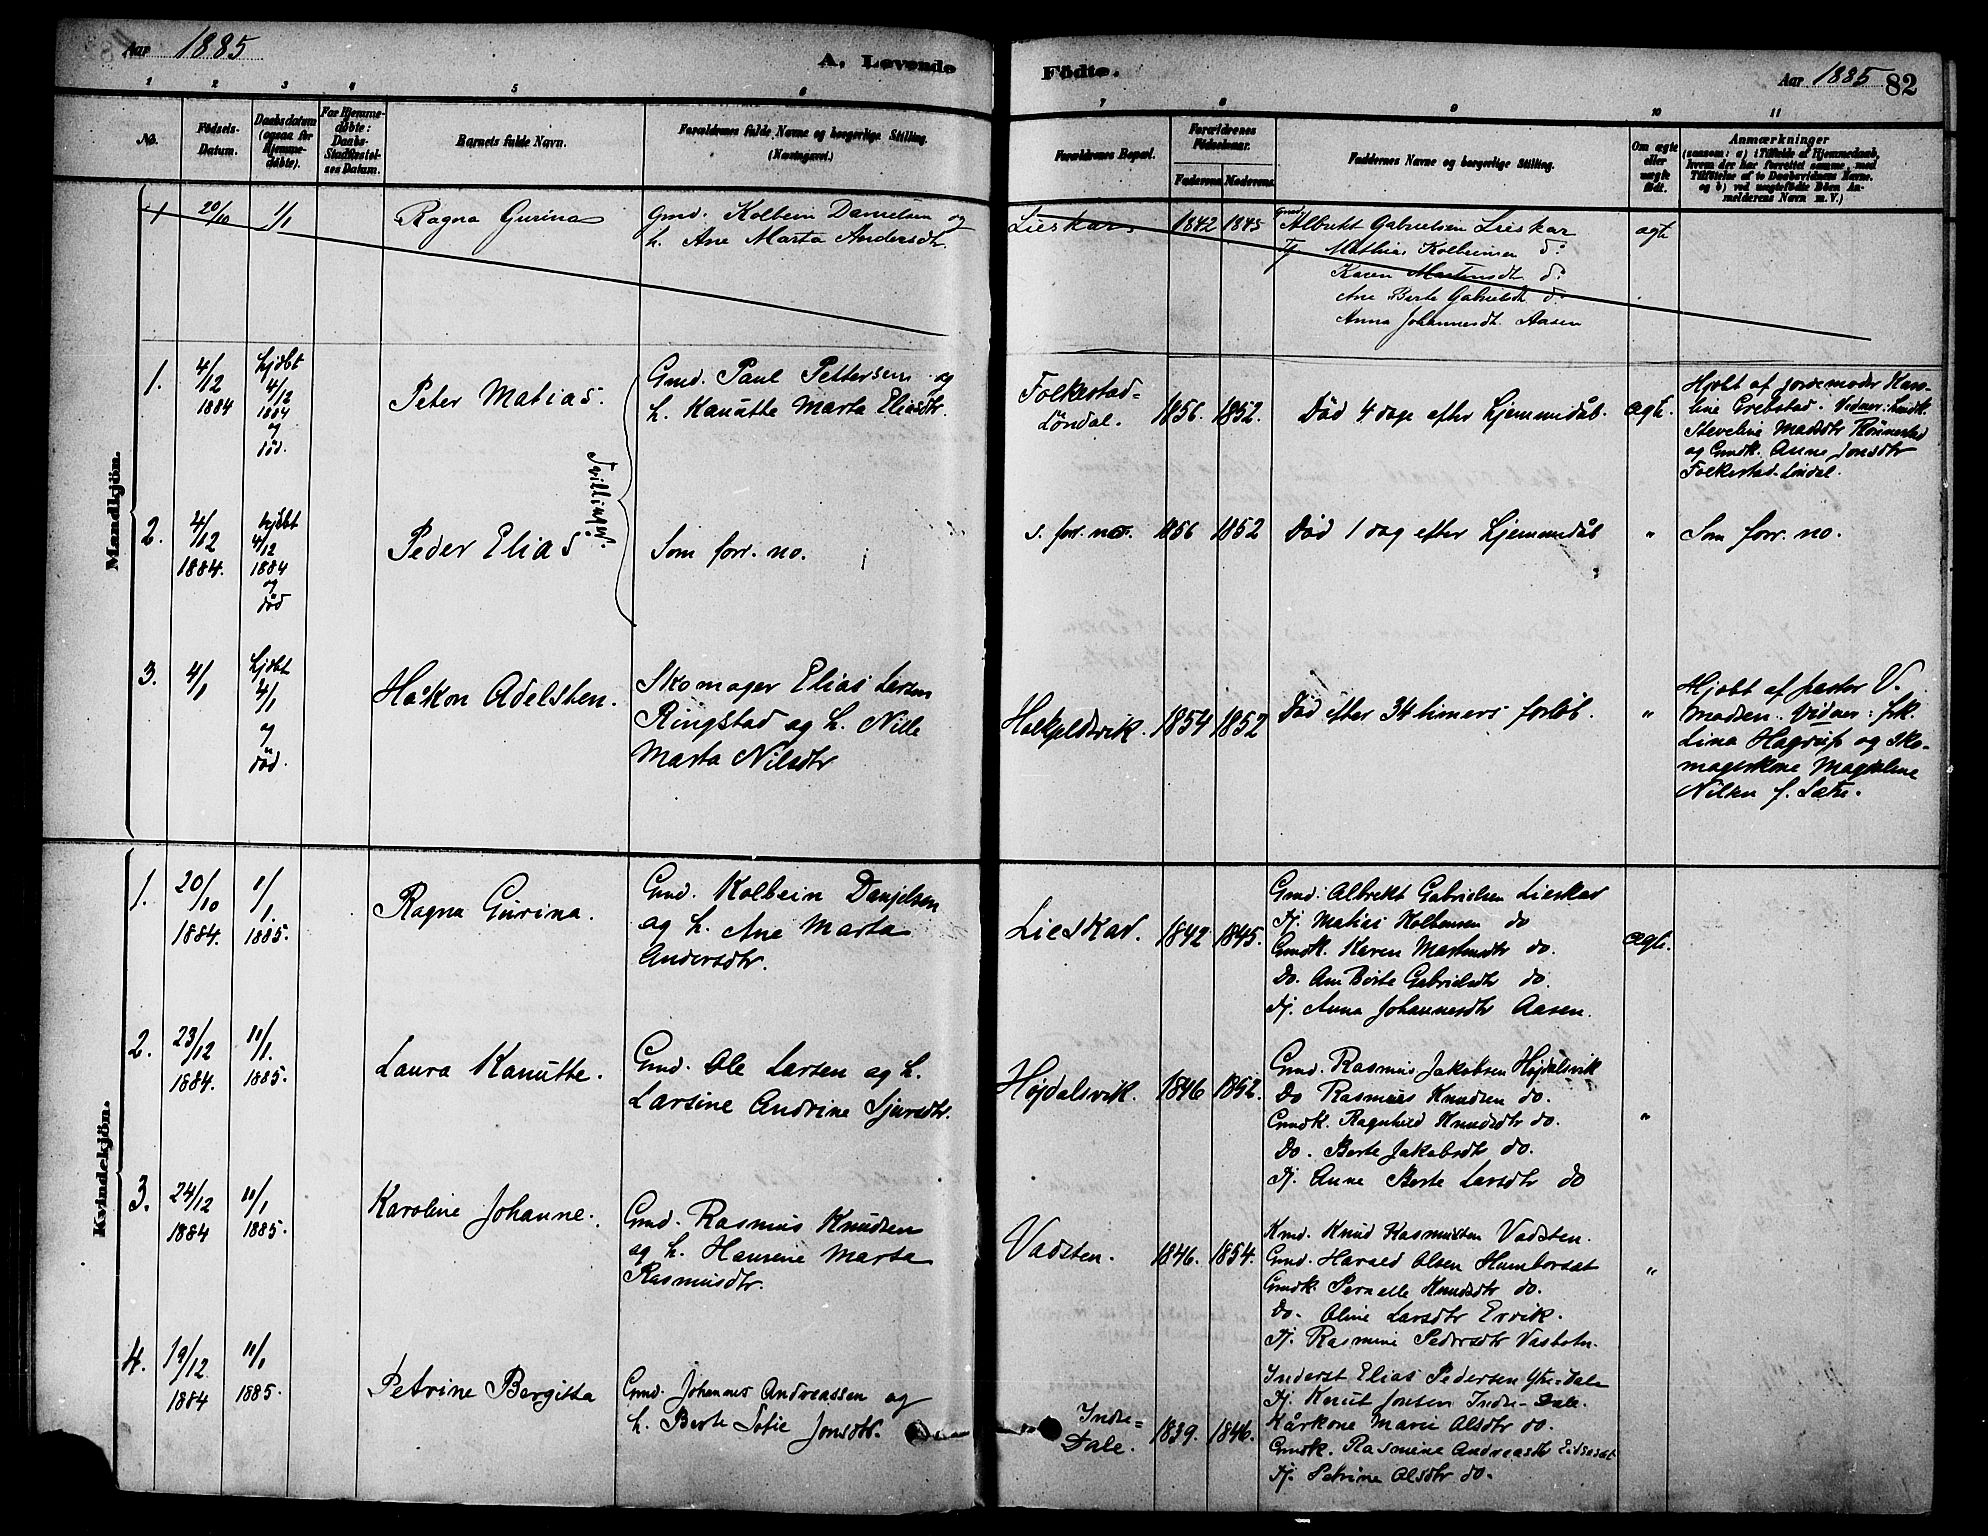 Aar 1885
A. Levende
Födte.
Aar 1885 82
1 2 3 4 5 6 7 8 9 10 11
No.
Födsels-
Datum.
Daabsdatum
(ogsaa for
Hjemme-
döbte).
For Hjemme-
döbte:
Daabs-
Stadfæstel-
ses Datum.
Barnets fulde Navn.
Forældrenes fulde Navne og borgerlige Stilling.
(Næringsvei.)
Forældrenes Bopæl.
Forældrenes
Födselsaar.
Faderens. Moderens.
Faddernes Navne og borgerlige Stilling.
Om ægte
eller
uægte
födt.
Anmærkninger
(saasom: a) i Tilfælde af Hjemmedaab,
hvem der har forrettet samme, med
Tilföielse af to Daabsvidners Navne.
og b) ved uægtefödte Börn An-
melderens Navn m. V.)
Mandkjön.
1 20/10 1/1 Ragna Gurina
Gmd. Kolbein Danielsen og
h. Ane Marta Andersdt.
Lieskar 1842 1845
Gmd. Albrekt Gabrielsen Lieskar
Tj. Mathias Kolbeinsen do
Karen Martensdt do
Ane Berte Gabrielsdt do
Anna Johannesdt. Aasen
ægte
1. 4/12
1884
hjdbt
4/12
1884
og
död.
Peter Matias.
Gmd. Paul Pettersen og
h. Kanutte Marta Eliasdtr.
Folkestad-
Löndal.
1856. 1852.
Död 4 dage efter hjemmedåb.
ægte.
Hjdbt af jordemoder Karo-
line Grebstad. Vidner:
Steveline Madsdtr
og Gmdk. Anne Jonsdtr
Folkestad-Löndal.
Tvillinger.
2. 4/12
1884.
hjdbt
4/12
1884
og
död
Peder Elias
Som forr. no.
s. forr. no. 1856 1852
Död 1 dag efter hjemmedåb
"
Som forr. no.
3. 4/1
hjdbt
4/1
og
död.
Håkon Adelsten.
Skomager Elias Larsen
Ringstad og h. Nille
Marta Nilsdtr
1854 1852
Död efter 34 timers forløb.
"
Hjdbt af pastor V.
Madsen. Vidner: frk.
Lina Hagrup og sko-
magerkone Magdalene
Nilsen f. Sætre.
Kvindekjön.
1. 20/10
1884.
1/1.
1885.
Ragna Gurina.
Gmd. Kolbein Danjelsen
og h. Ane Marta
Andersdtr.
Lieskar. 1842 1845.
Gmd. Albrekt Gabrielsen Lieskar
Tj. Matias Kolbensen do
Gmdk. Karen Martensdtr do.
Do. Ane Berte Gabrielsdtr do.
Tj. Anna Johannesdtr Aasen.
ægte.
2. 23/12
1884.
11/1.
1885.
Laura Kanutte.
Gmd. Ole Larsen og h.
Larsine Andrine Sjursdtr.
Højdalsvik. 1846 1852.
Gmd. Rasmus Jakobsen Højdalsvik
Do Rasmus Knudsen do.
Gmdk. Ragnhild Knudsdtr do.
Do. Berte Jakobsdtr do.
Tj. Anne Berte Larsdtr do
"
3. 24/12
1884
11/1
1885.
Karoline Johanne.
Gmd. Rasmus Knudsen
og h. Hansene Marta
Rasmusdtr.
Vadsten. 1846. 1854.
Kmd. Knud Rasmussen Vadsten.
Gmd. Harald Olsen Humborsæt
Gmdk. Pernelle Knudsdtr do.
Do. Oline Larsdtr Ervik.
Tj. Rasmine Pedersdtr Vasbotn.
"
4. 19/12
1884
11/1
1885.
Petrine Bergitta
Gmd. Johannes Andreassen og
h. Berte Sofie Jonsdtr.
Indre-
Dale.
1839. 1846.
Inderst Elias Pedersen Ytre-Dale
Tj. Knut Jonsen Indre-Dale.
Kårkone Marie Olsdtr do.
Gmdk. Rasmine Andreasdtr
Tj. Petrine Olsdtr do.